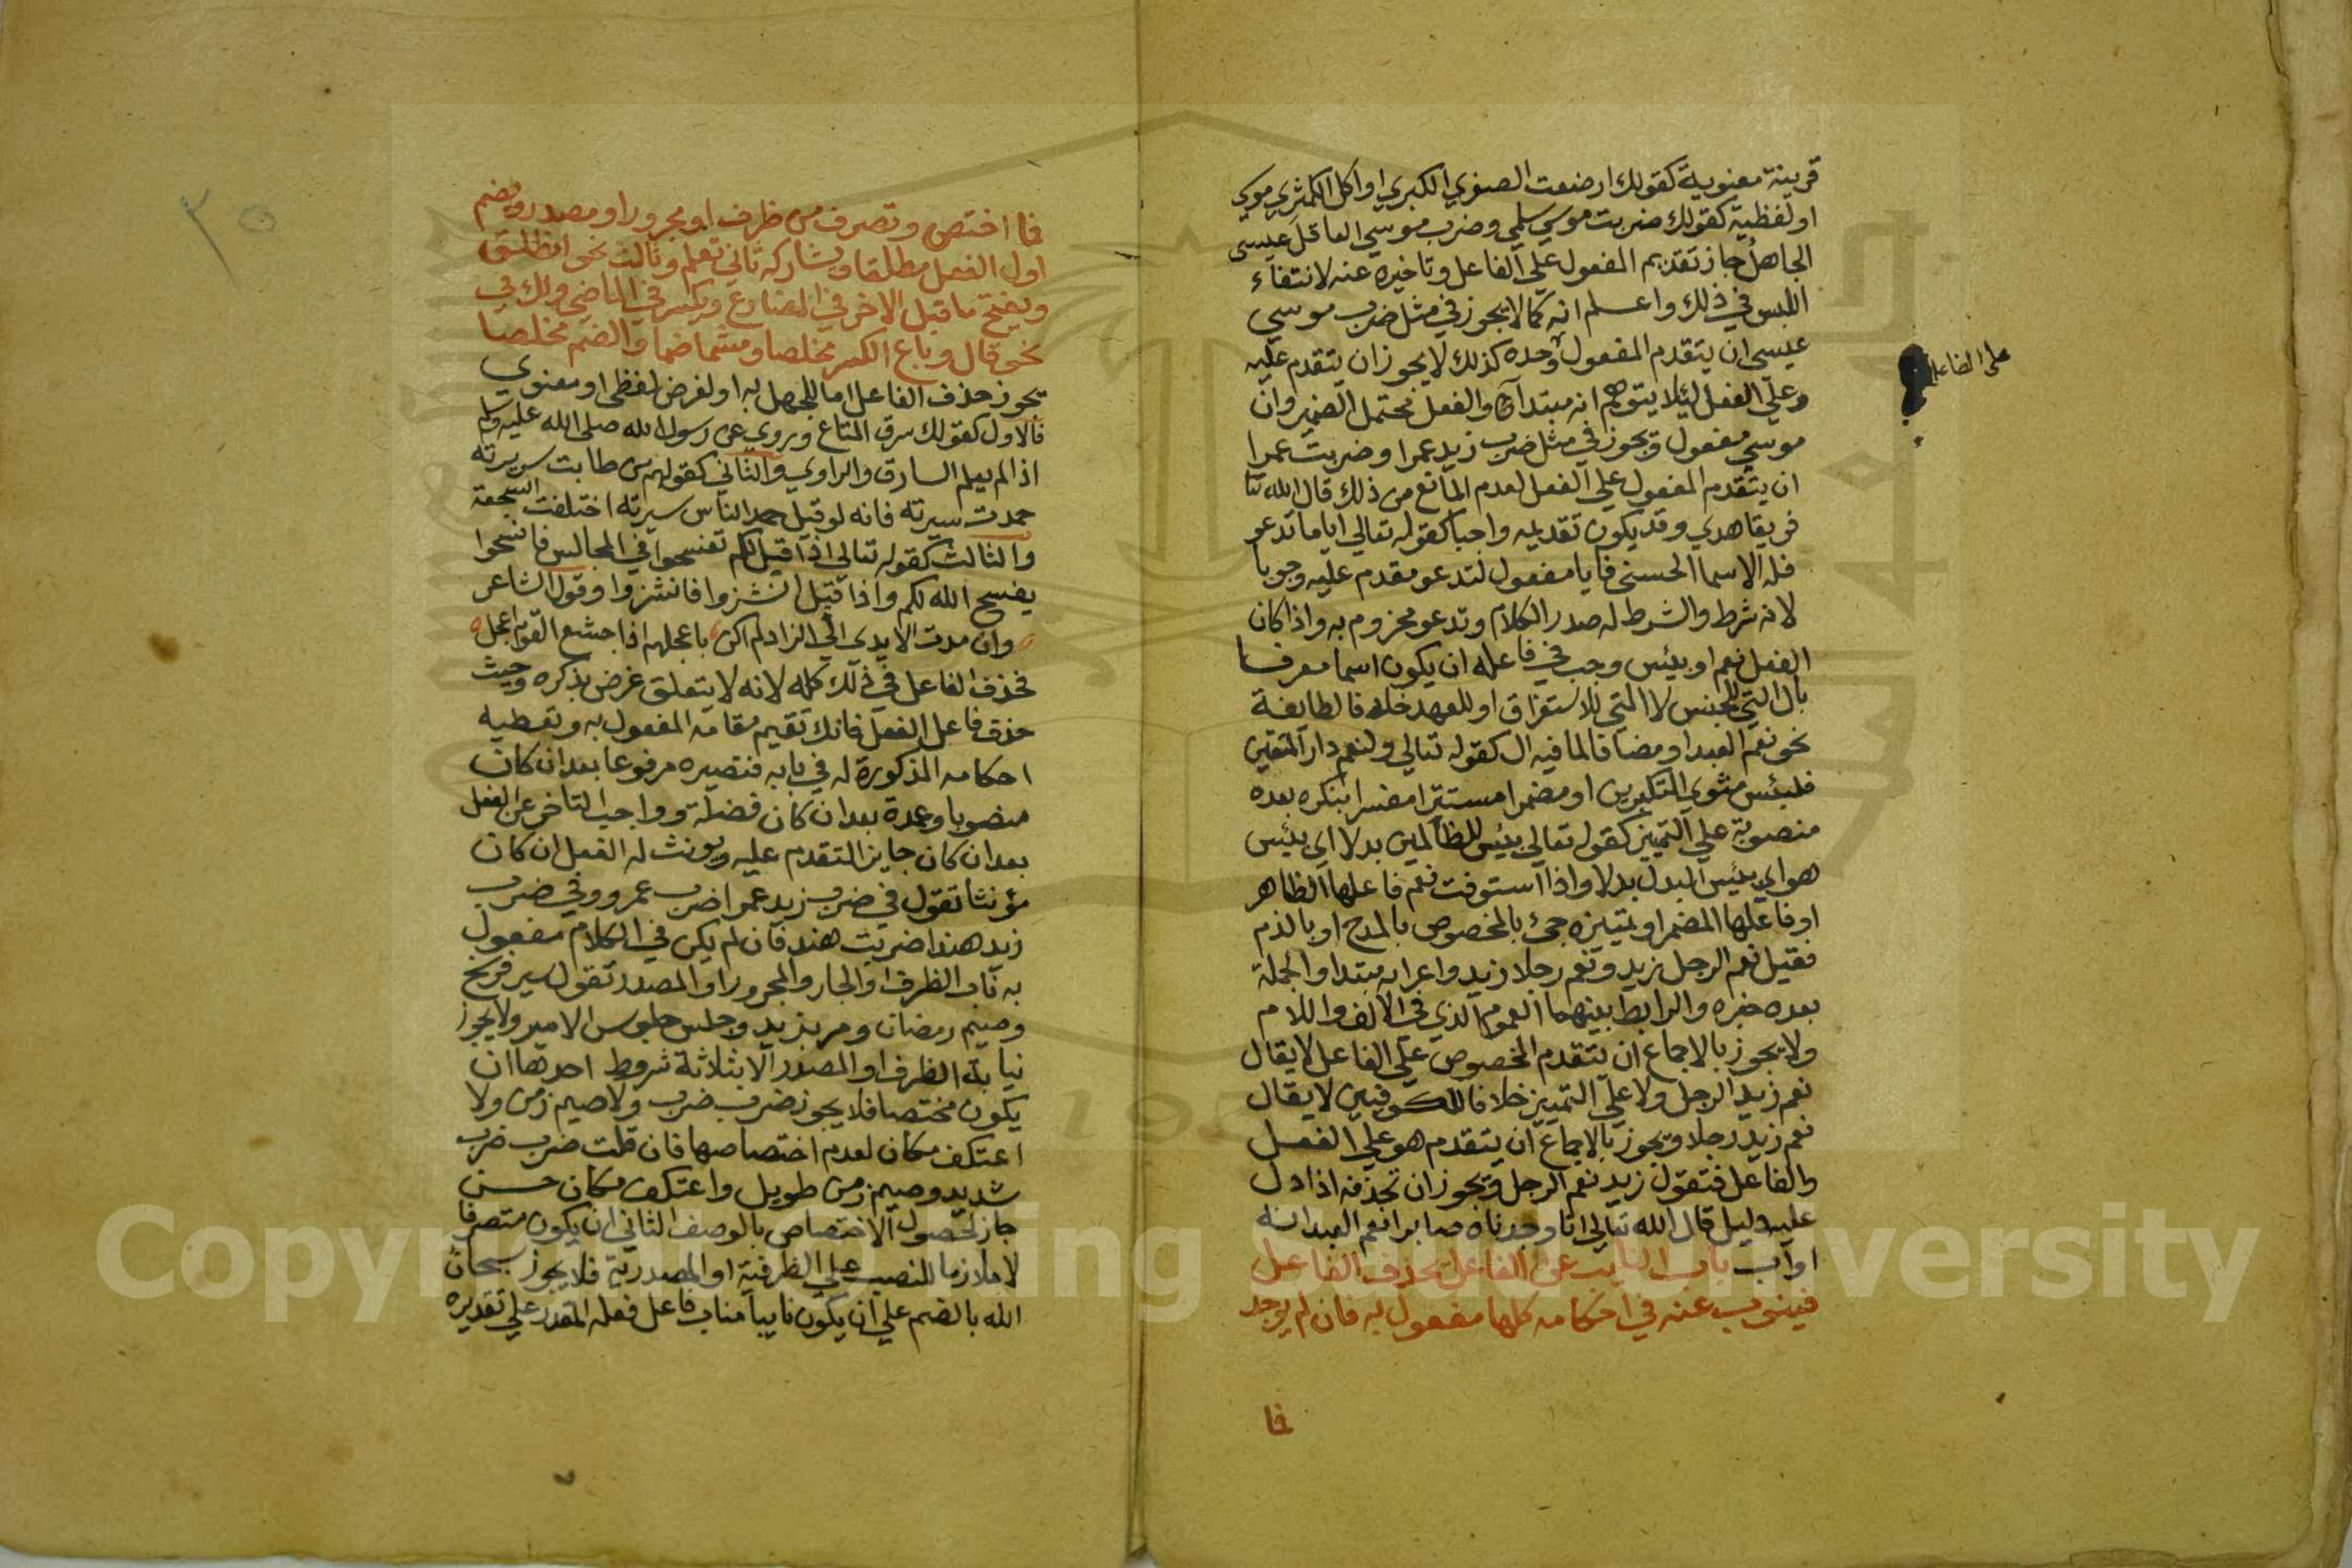 قرينة معنوية كقولك ارضعت الصغري الكبري او اكل الكمثري موسي
او لفظية كقولك ضربت موسي سلمي وضرب موسي العاقل عيسي
الجاهل جاز تقديم المفعول علي الفاعل وتاخيره عنه لانتفاء
اللبس في ذلك واعلم انه كما لا يجوز في مثل ضرب موسي
عيسي ان يتقدم المفعول وحده كذلك لا يجوز ان يتقدم عليه
وعلي الفعل ليلا يتوهم انه مبتدا والفعل محتمل الضمير وان
موسي مفعول ويجوز في مثل ضرب زيد عمرا وضربت عمرا
ان يتقدم المفعول علي الفعل لعدم المانع من ذلك قال الله تعا
فريقا هدي وقد يكون تقديمه واجبا كقوله تعالي اياما تدعو
فله الاسما الحسني فايا مفعول لتدعو مقدم عليه وجوبا
لانه شرط والشرط له صدر الكلام وتدعو مجزوم به واذا كان
الفعل نعم او بيئس وجب في فاعله ان يكون اسما معرفا
بال التي للجنس لا التي للاستغراق او للعهد خلافا لطايفة
نحو نعم العبد او مضافا لما فيه ال كقوله تعالي ولنعم دار المتقين
فلبئس مثوي المتكبرين او مضمرا مستترا مفسرا بنكره بعده
منصوبة علي التمييز كقوله تعالي بيئس للظالمين بدلا اي بيئس
هو اي بيئس البدل بدلا واذا استوفت نعم فاعلها الظاهر
او فاعلها المضمر او تمييزه جئ بالمخصوص بالمدح او بالذم
فقيل نعم الرجل زيد ونعم رجلا زيد واعرابه مبتدا والجملة
بعده خبره والرابط بينهما العموم الذي في الالف واللام
ولا يجوز بالاجماع ان يتقدم المخصوص علي الفاعل لا يقال
نعم زيد الرجل ولا علي التمييز خلافا للكوفيين لا يقال
نعم زيد رجلا ويجوز بالاجماع ان يتقدم هو علي الفعل
والفاعل فتقول زيد نعم الرجل ويجوز ان تحذفه اذا دل
عليه دليل قال الله تعالي انا وجدناه صابرا نعم العبد انه
اواب باب النايب عن الفاعل يحذف الفاعل
فينوب عنه في احكامه كلها مفعول به فان لم يوجد
فا
علي الفاعل
٣٥
فما اختص وتصرف من ظرف او مجرور او مصدر ويضم
اول الفعل مطلقا ويشاركه ثاني تعلم وثالث نحو انطلق
ويفتح ما قبل الاخر في المضارع ويكسر في الماضي ولك في
نحو قال وباع الكسر مخلصا ومشما ضما والضم مخلصا
يجوز حذف الفاعل اما للجهل به او لغرض لفظي او معنوي
فالاول كقولك سرق المتاع وروي عن رسول الله صلي الله عليه وسلم
اذا لم يعلم السارق والراوي والثاني كقولهم من طابت سريرته
حمدت سيرته فانه لو قيل حمد الناس سيرته اختلفت السجعة
والثالث كقوله تعالي اذا قيل لكم تفسحوا في المجالس فافسحوا
يفسح الله لكم واذا قيل انشزوا فانشزوا وقول الشاعر
وان مدت الايدي الي الزاد لم اكن باعجلهم اذا جشع القوم اعجل
فحذف الفاعل في ذلك كله لانه لا يتعلق غرض بذكره وحيث
حذف فاعل الفعل فانك تقيم مقامه المفعول به وتعطيه
احكامه المذكورة له في بابه فتصيره مرفوعا بعد ان كان
منصوبا وعمدة بعد ان كان فضلة وواجب التاخر عن الفعل
بعد ان كان جايز التقدم عليه ويونث له الفعل ان كان
مؤنثا تقول في ضرب زيد عمرا ضرب عمرو وفي ضرب
زيد هندا ضربت هند فان لم يكن في الكلام مفعول
به ناب الظرف او الجار والمجرور او المصدر تقول سير فرسخ
وصيم رمضان ومر بزيد وجلس جلوس الامير ولا يجوز
نيابة الظرف او المصدر الا بثلاثة شروط احدها ان
يكون مختصا فلا يجوز ضرب ضرب ولا صيم زمن ولا
اعتكف مكان لعدم اختصاصها فان قلت ضرب ضرب
شديد وصيم زمن طويل واعتكف مكان حسن
جاز لحصول الاختصاص بالوصف الثاني ان يكون متصرفا
لا ملازما للنصب علي الظرفية او المصدرية فلا يجوز سبحان
الله بالضم علي ان يكون نايبا مناب فاعل فعله المقدر علي تقديره
Copyright © King Saud University